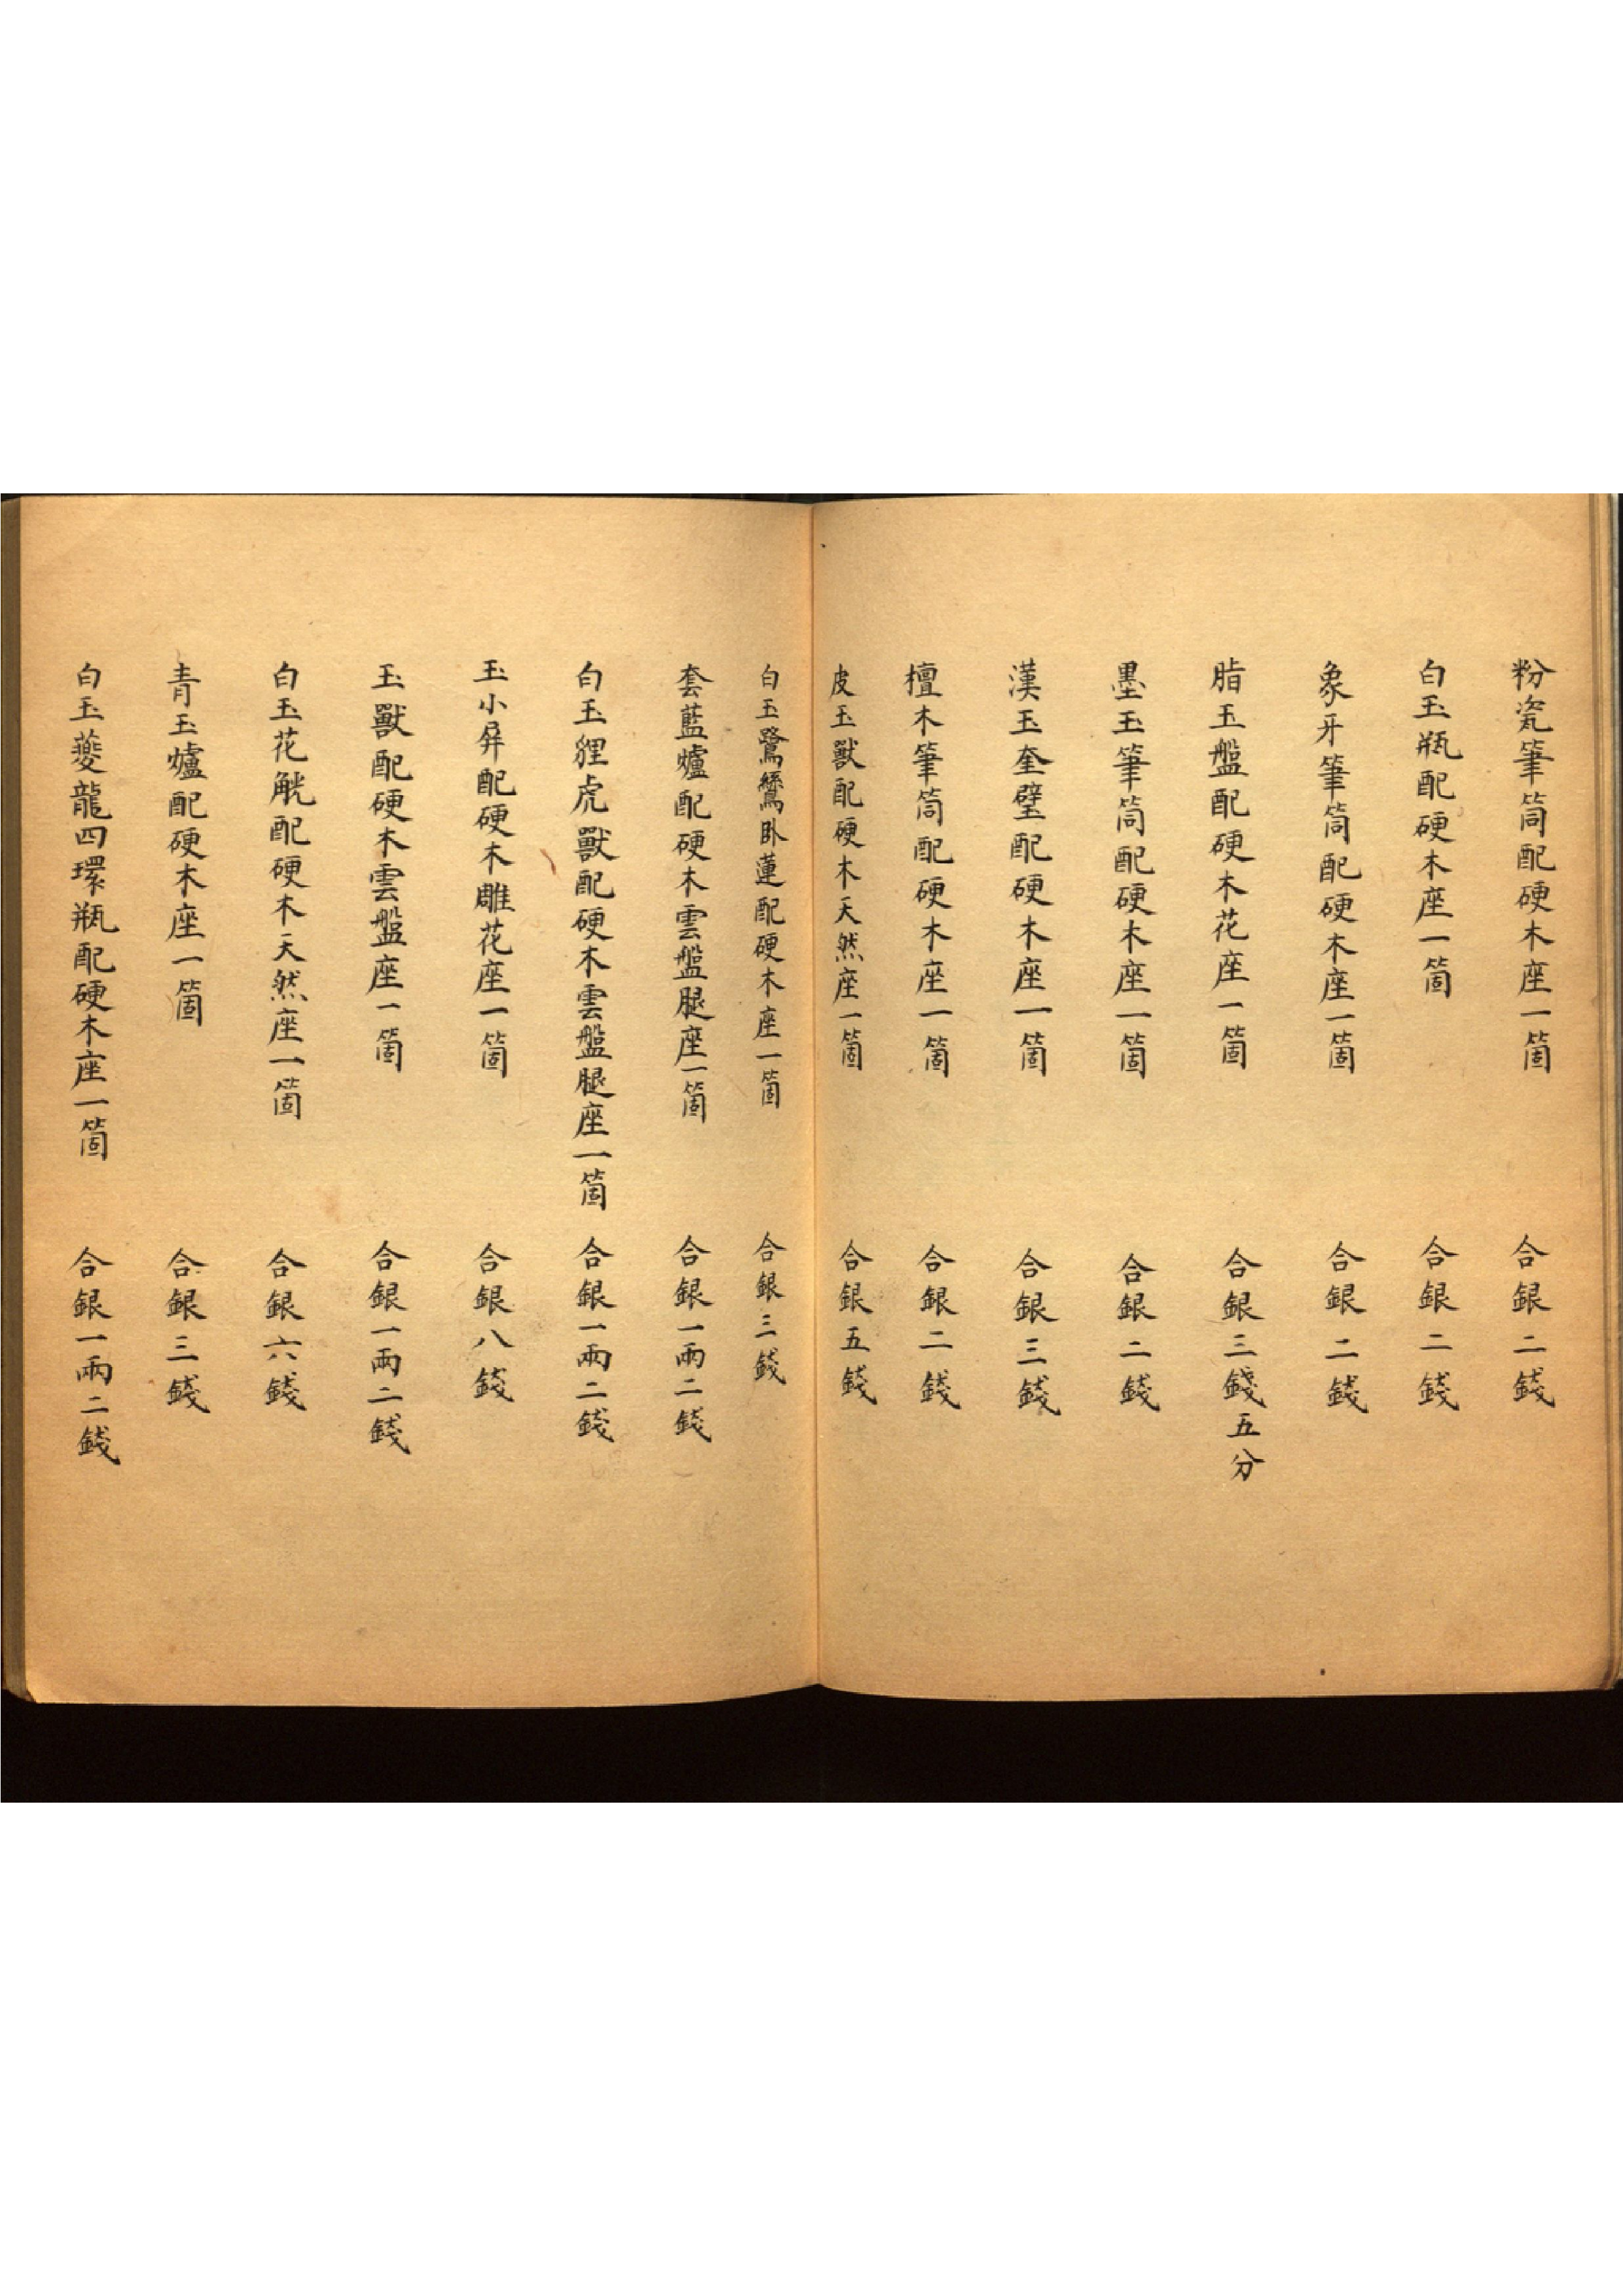 粉瓷筆筒配硬木座一箇 合銀二錢
白玉瓶配硬木座一箇 合銀二錢
象牙筆筒配硬木座一箇 合銀二錢
脂玉盤配硬木花座一箇 合銀三錢五分
墨玉筆筒配硬木座一箇 合銀二錢
漢玉奎璧配硬木座一箇 合銀三錢
檀木筆筒配硬木座一箇 合銀二錢
皮玉獸配硬木天然座一箇 合銀五錢
白玉鷺鷥臥蓮配硬木座一箇 合銀三錢
套藍爐配硬木雲盤腿座一箇 合銀一兩二錢
白玉貍虎獸配硬木雲盤腿座一箇 合銀一兩二錢
玉小屏配硬木雕花座一箇 合銀八錢
玉獸配硬木雲盤座一箇 合銀一兩二錢
白玉花觥配硬木天然座一箇 合銀六錢
青玉爐配硬木座一箇 合銀三錢
白玉夔龍四環瓶配硬木座一箇 合銀一兩二錢